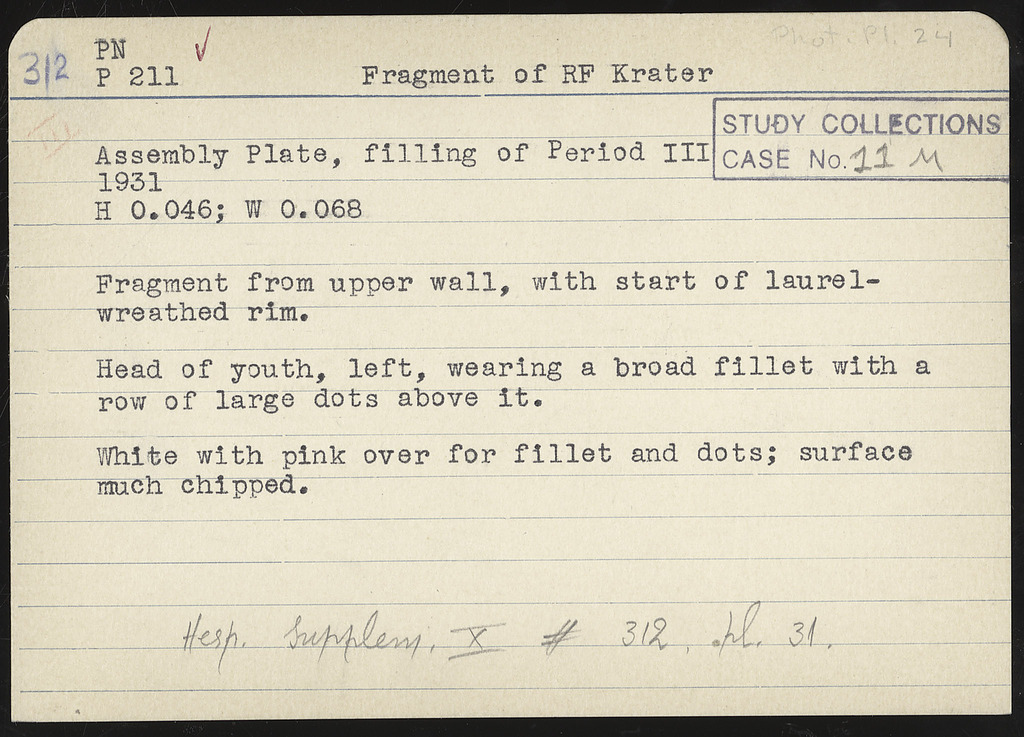 Phot. Pl. 24
312
PN
P 211
Fragment of RF Krater
STUDY COLLECTIONS
CASE No. 11 M
III
Assembly Plate, filling of Period III
1931
H 0.046; W 0.068
Fragment from upper wall, with start of laurel-
wreathed rim.
Head of youth, left, wearing a broad fillet with a
row of large dots above it.
White with pink over for fillet and dots; surface
much chipped.
Hesp. Supplem. X # 312, pl. 31.